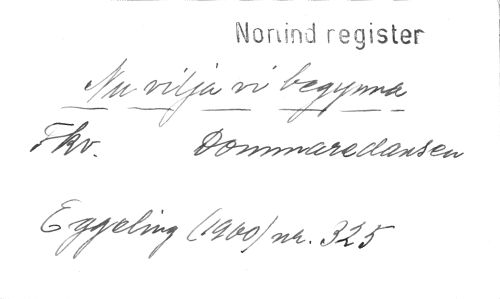 Norrind register
Nu vilja vi begynna
Fkv. Dommaredansen
Eggeling (1900) nr. 325